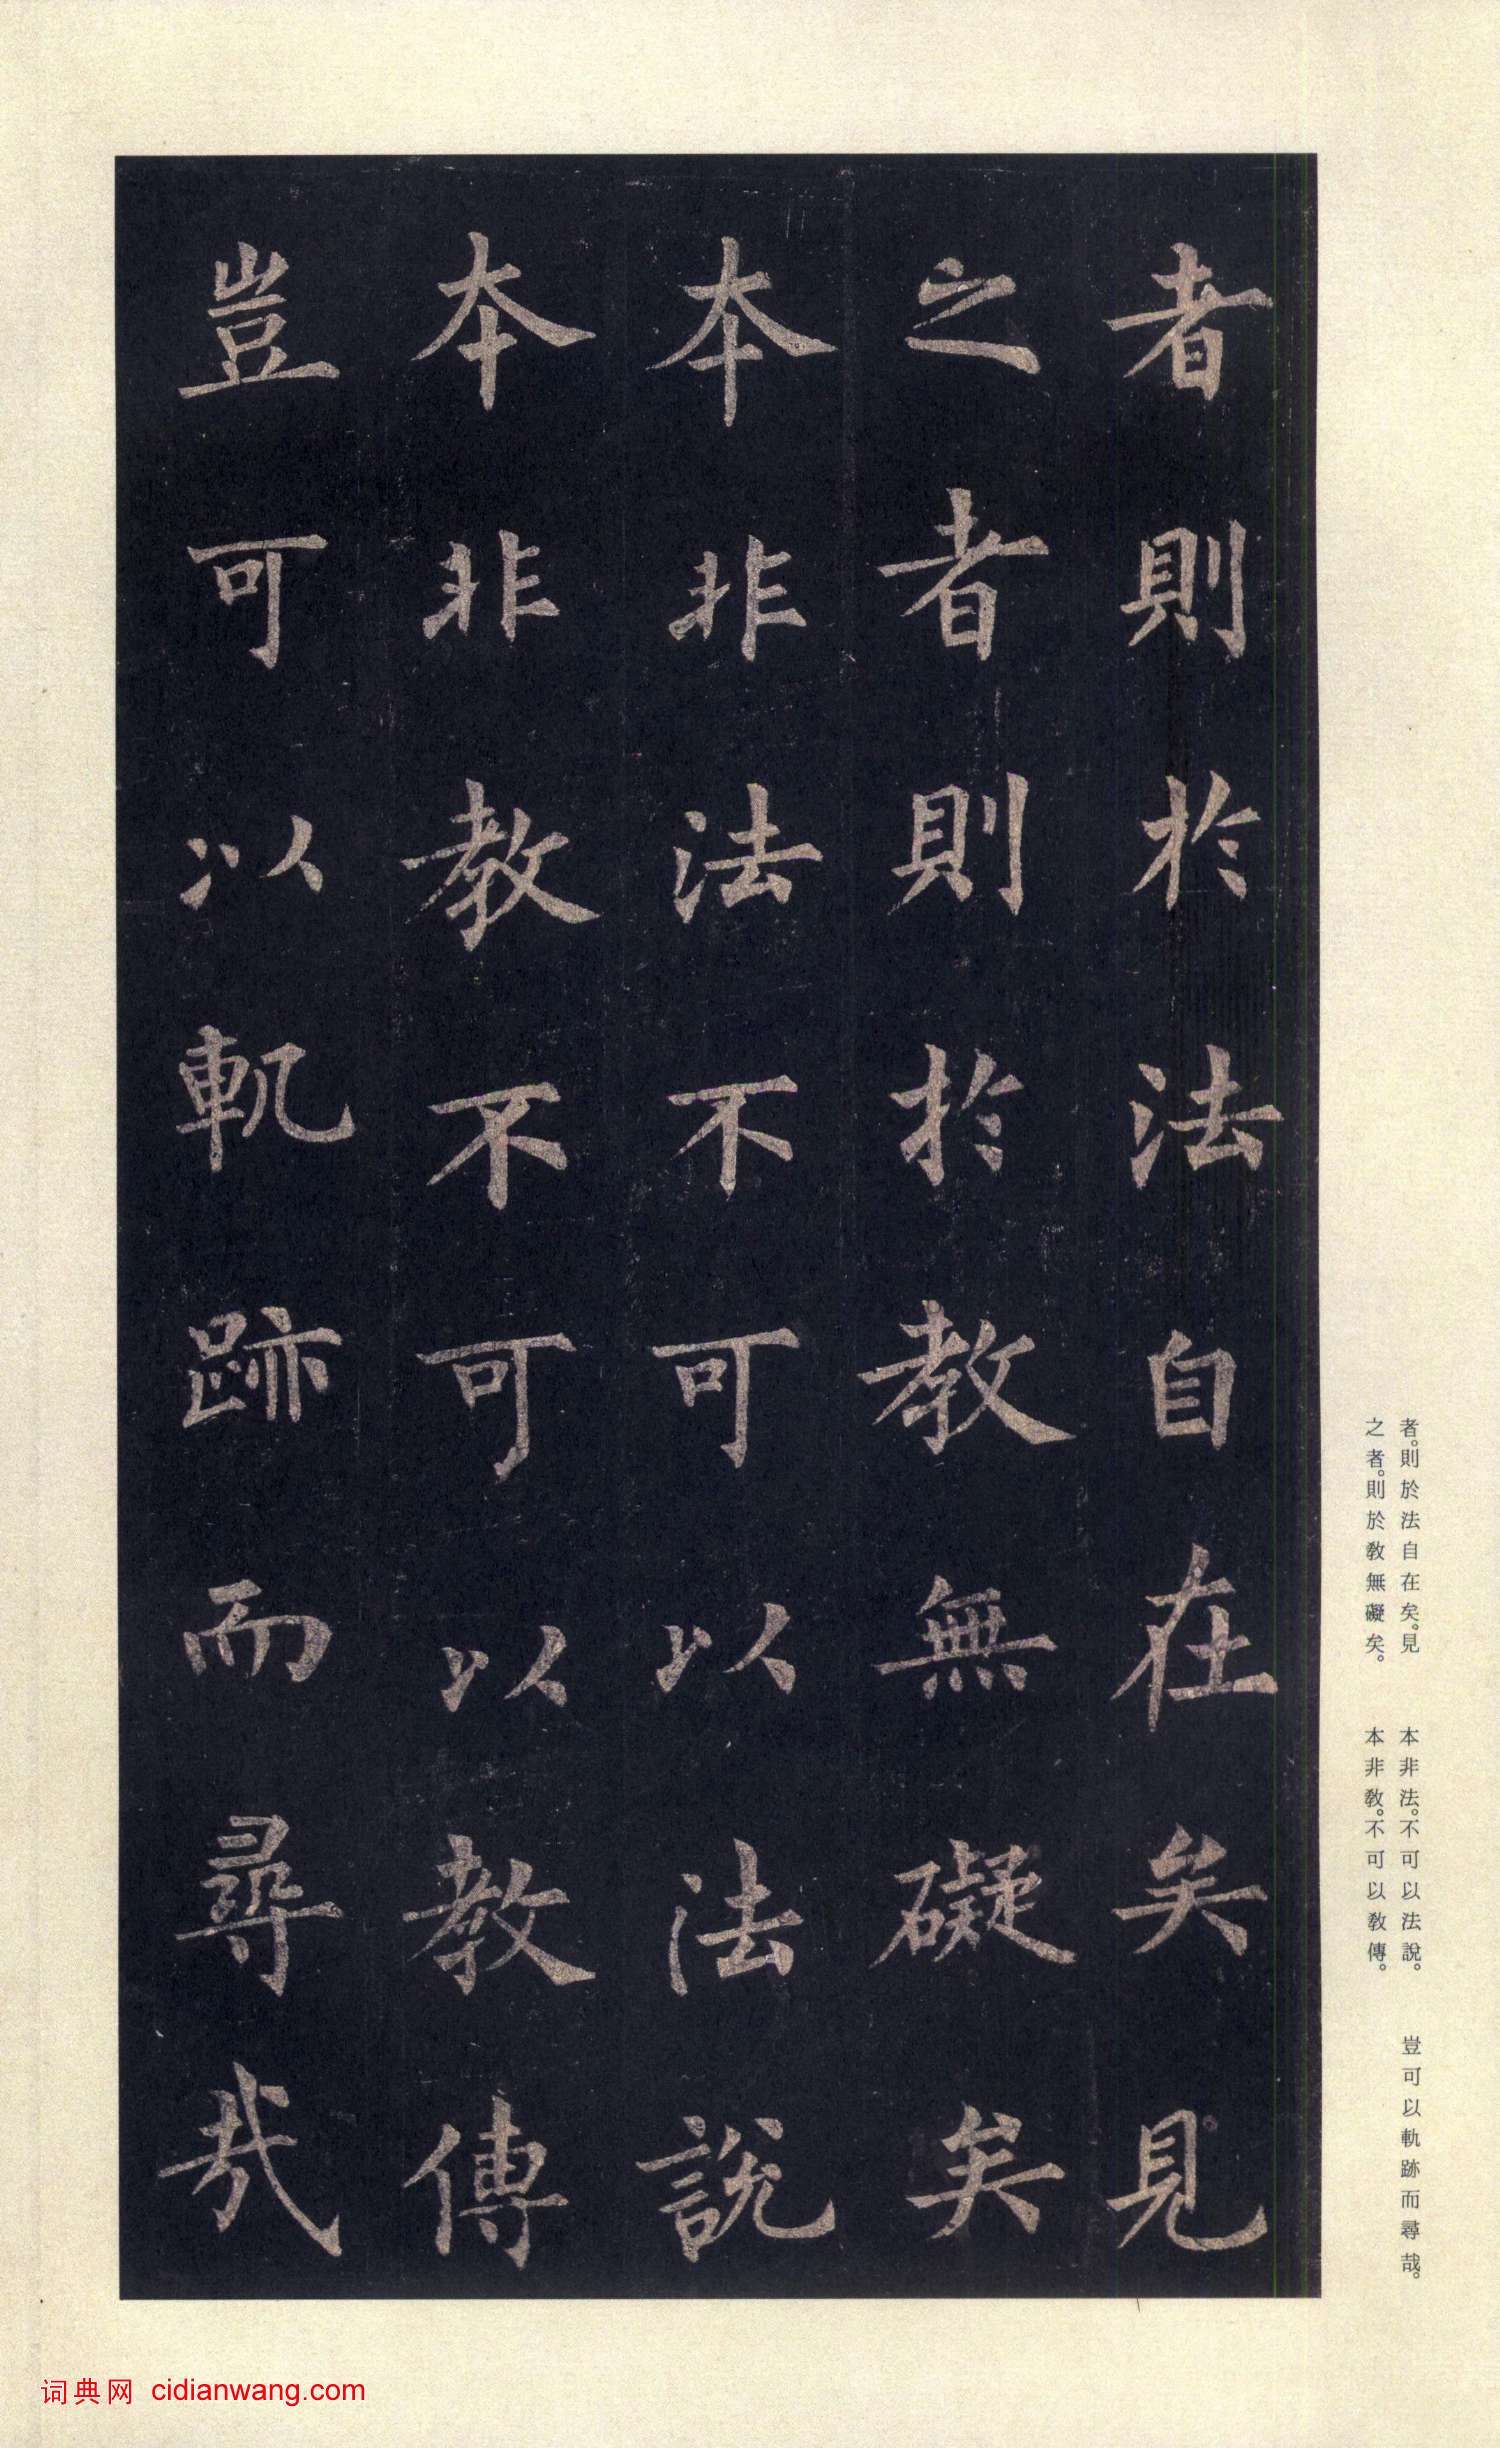 者則於法自在矣見
之者則於教無礙矣
本非法不可以法說
本非教不可以教傳
豈可以軌跡而尋哉
者。則於法自在矣。見
之者。則於教無礙矣。
本非法。不可以法說。
本非教。不可以教傳。
豈可以軌跡而尋哉。
词典网 cidianwang.com